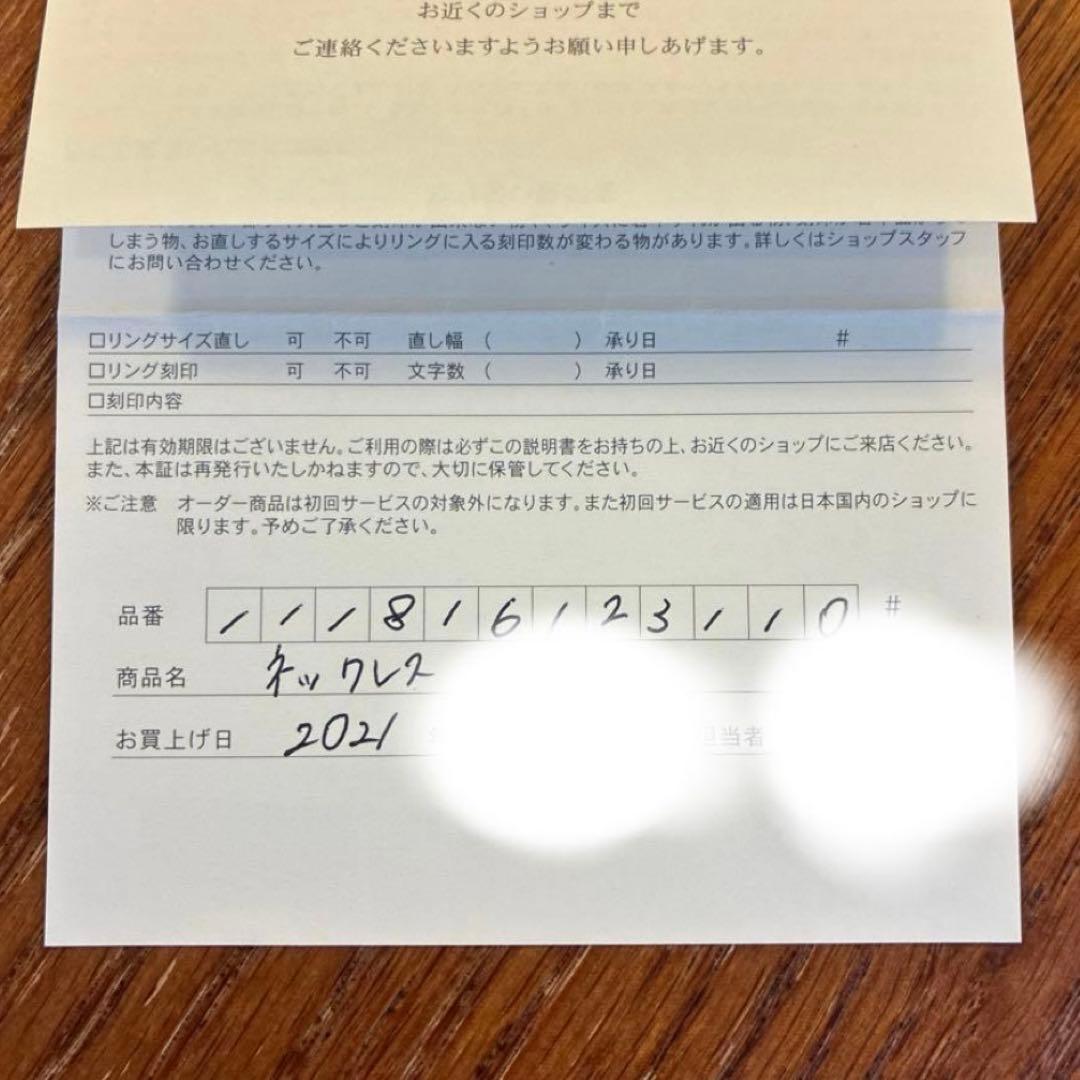 お近くのショップまで
ご連絡くださいますようお願い申しあげます。
しまう物、お直しするサイズによりリングに入る刻印数が変わる物があります。詳しくはショップスタッフ
にお問い合わせください。
□リングサイズ直し 可 不可 直し幅 ( ) 承り日 #
□リング刻印 可 不可 文字数 ( ) 承り日
□刻印内容
上記は有効期限はございません。ご利用の際は必ずこの説明書をお持ちの上、お近くのショップにご来店ください。
また、本証は再発行いたしかねますので、大切に保管してください。
※ご注意 オーダー商品は初回サービスの対象外になります。また初回サービスの適用は日本国内のショップに
限ります。予めご了承ください。
品番 111816123110 #
商品名 ネックレス
お買上げ日 2021 担当者